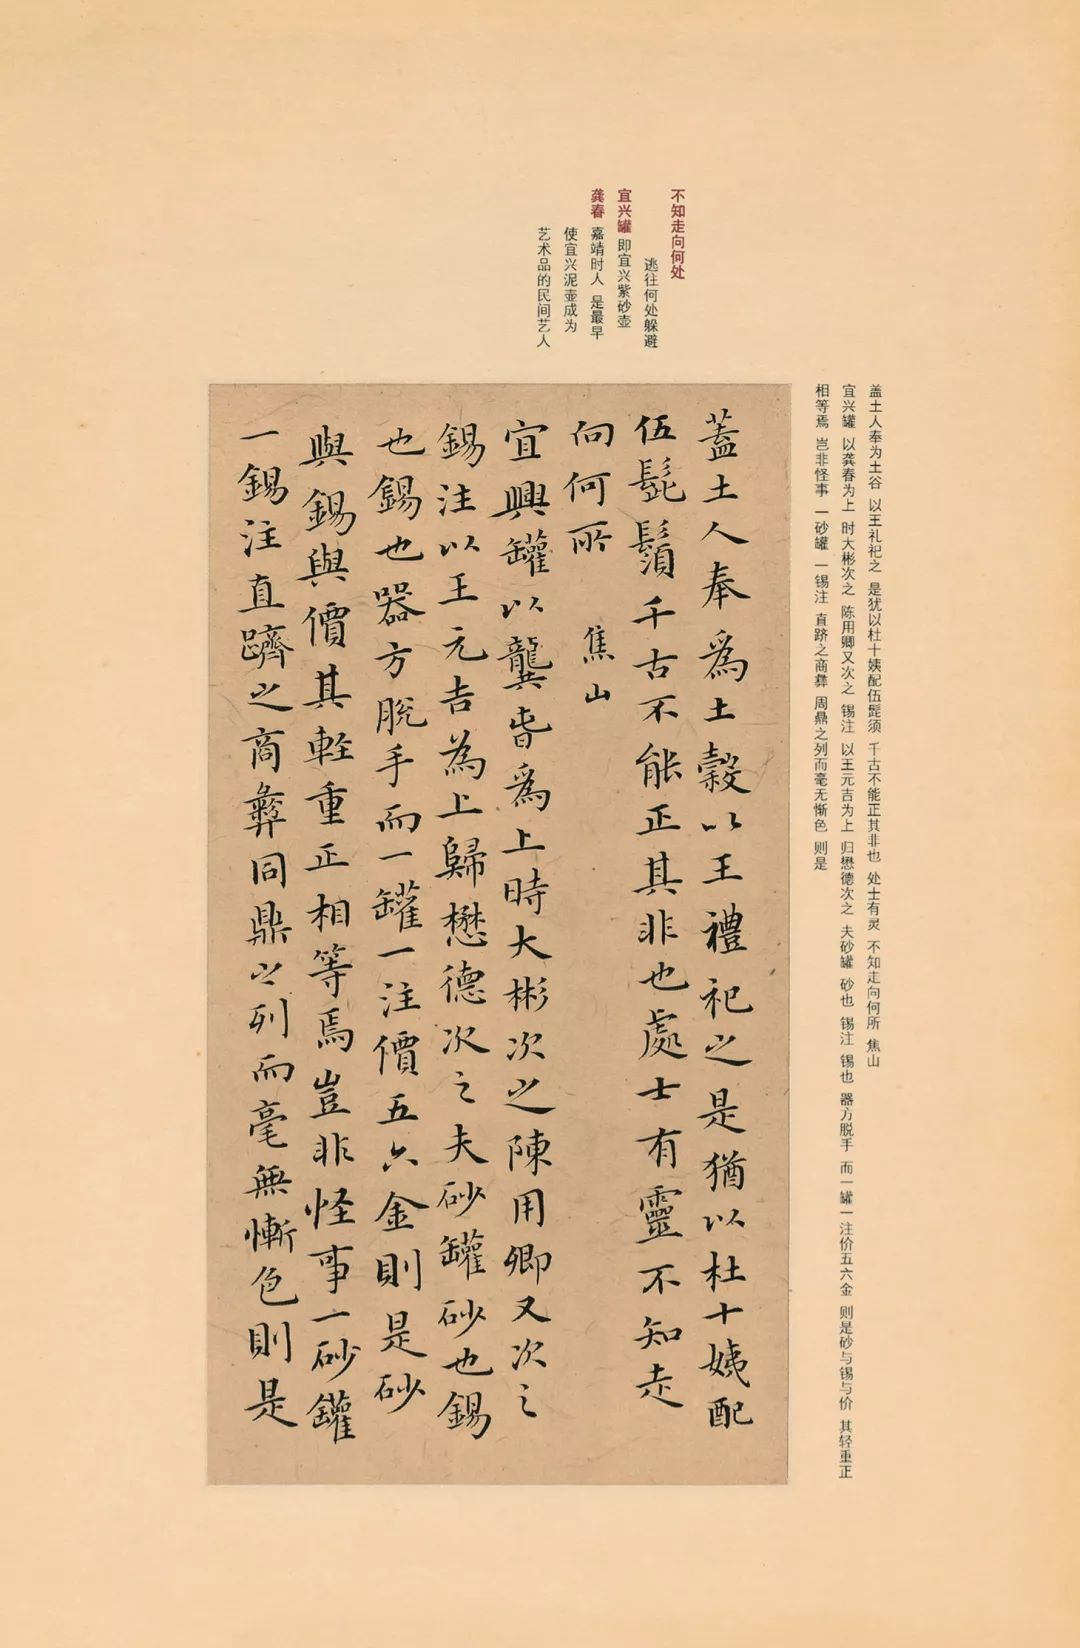 不知走向何处
逃往何处躲避
宜兴罐 即宜兴紫砂壶
龚春 嘉靖时人 是最早
使宜兴泥壶成为
艺术品的民间艺人
盖土人奉为土谷 以王礼祀之 是犹以杜十姨配伍髭须 千古不能正其非也 处士有灵 不知走向何所 焦山
宜兴罐 以龚春为上 时大彬次之 陈用卿又次之 锡注 以王元吉为上 归懋德次之 夫砂罐 砂也 锡注 锡也 器方脱手 而一罐一注价五六金 则是砂与锡与价 其轻重正
相等焉 岂非怪事 一砂罐 一锡注 直跻之商彝 周鼎之列而毫无惭色 则是
蓋土人奉爲土穀以王禮祀之是猶以杜十姨配
伍髭鬚千古不能正其非也處士有靈不知走
向何所 焦山
宜興罐以龔春爲上時大彬次之陳用卿又次之
錫注以王元吉為上歸懋德次之夫砂罐砂也錫
也錫也器方脫手而一罐一注價五六金則是砂
與錫與價其輕重正相等焉豈非怪事一砂罐
一錫注直躋之商彝同鼎之列而毫無慚色則是